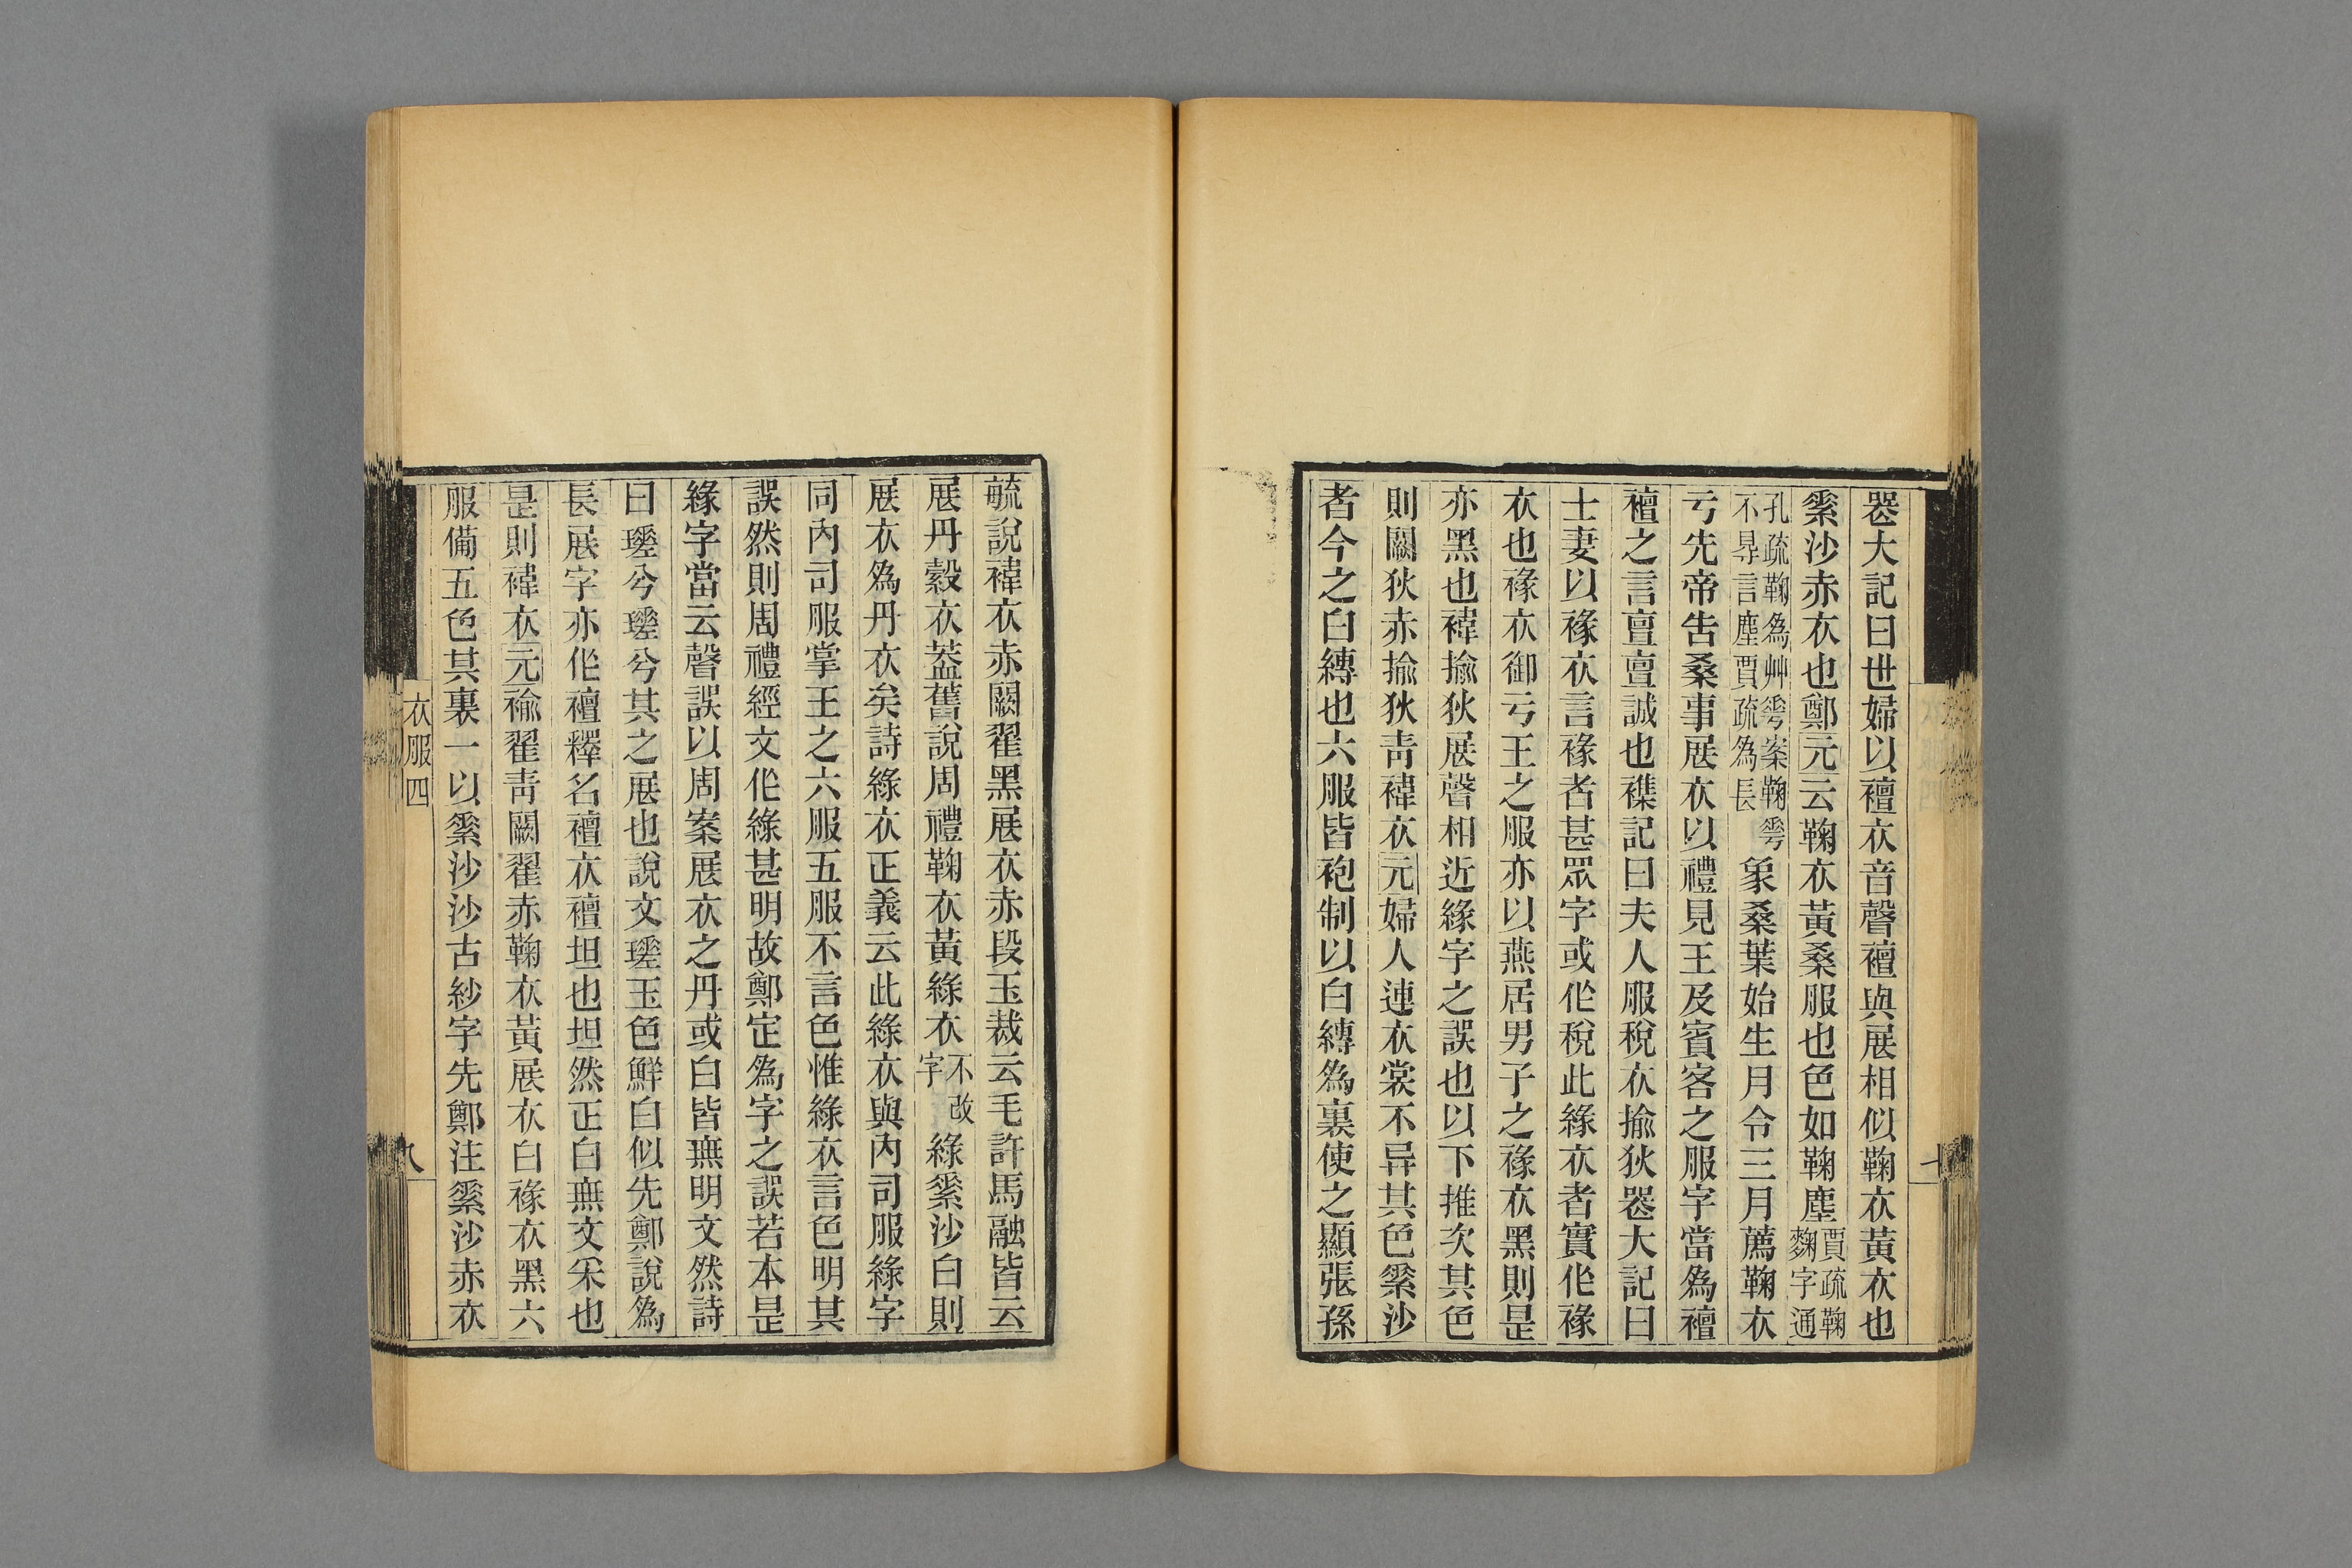 喪大記曰世婦以襢衣音聲襢與展相似鞠衣黃衣也
素沙赤衣也鄭元云鞠衣黃桑服也色如鞠塵賈疏鞠麴字通
孔疏鞠爲艸雩案鞠雩不㝵言塵賈疏爲長象桑葉始生月令三月薦鞠衣
亏先帝告桑事展衣以禮見王及賓客之服字當爲襢
襢之言亶亶誠也襍記曰夫人服稅衣揄狄喪大記曰
士妻以褖衣言褖者甚眾字或作稅此緣衣者實作褖
衣也褖衣御亏王之服亦以燕居男子之褖衣黑則是
亦黑也褘揄狄展聲相近緣字之誤也以下推次其色
則闕狄赤揄狄青褘衣元婦人連衣裳不异其色素沙
者今之白縳也六服皆袍制以白縳爲裏使之顯張孫
毓說褘衣赤闕翟黑展衣赤段玉裁云毛許馬融皆云
展丹縠衣葢舊說周禮鞠衣黃緣衣不改字綠素沙白則
展衣爲丹衣矣詩綠衣正義云此綠衣與內司服綠字
同內司服掌王之六服五服不言色惟綠衣言色明其
誤然則周禮經文作綠甚明故鄭定爲字之誤若本是
緣字當云聲誤以周案展衣之丹或白皆無明文然詩
曰瑳兮瑳兮其之展也說文瑳玉色鮮白似先鄭說爲
長展字亦作襢釋名襢衣襢坦也坦然正白無文采也
是則褘衣元褕翟青闕翟赤鞠衣黃展衣白褖衣黑六
服備五色其裏一以素沙沙古紗字先鄭注素沙赤衣
衣服四
八